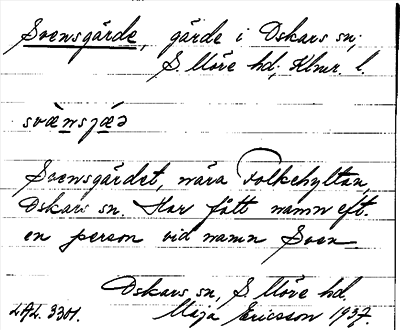 Svensgärde, gärde i Oskars sn,
S. Möre hd, Klmr. l.
svènsjæ̀ə
Svensgärdet, nära Folkehyltan,
Oskars sn. Har fått namn eft.
en person vid namn Sven
Oskars sn, S. Möre hd.
LAL. 3301. Maja Ericsson 1937.